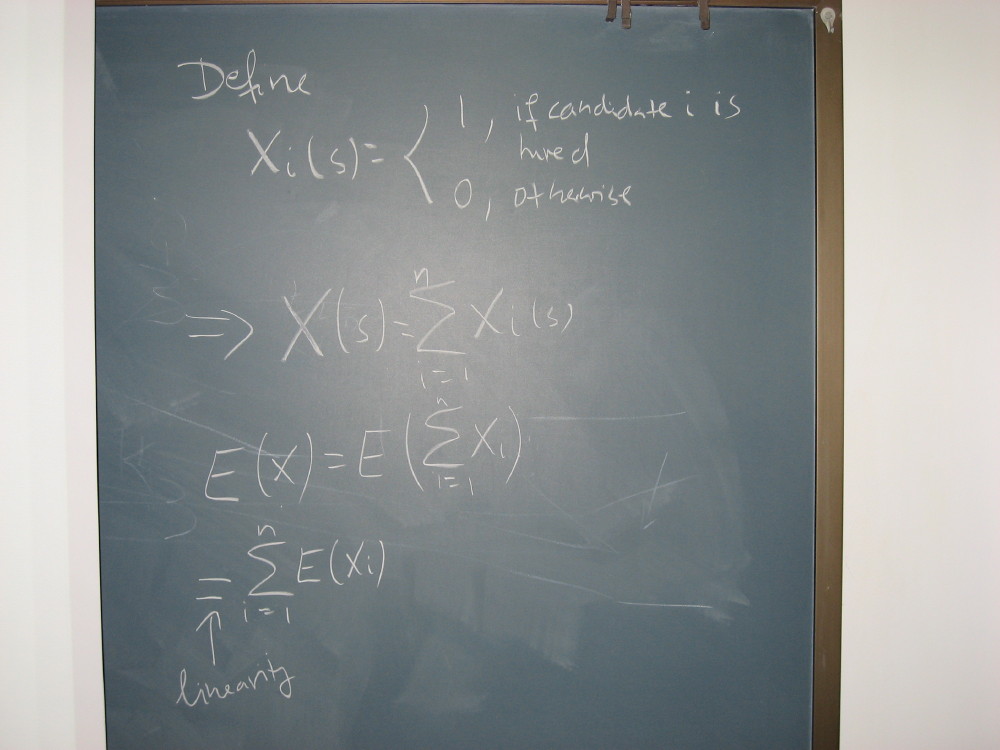 Define
Xi(s) = { 1, if candidate i is
hired
0, otherwise
⇒ X(s) = ∑_{i=1}^{n} Xi(s)
E(X) = E(∑_{i=1}^{n} Xi)
= ∑_{i=1}^{n} E(Xi)
↑
linearity